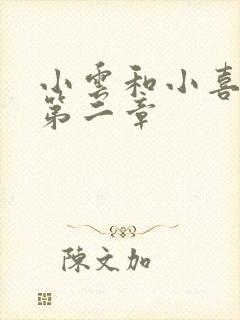 小雲和小喜
第二章
陳文加